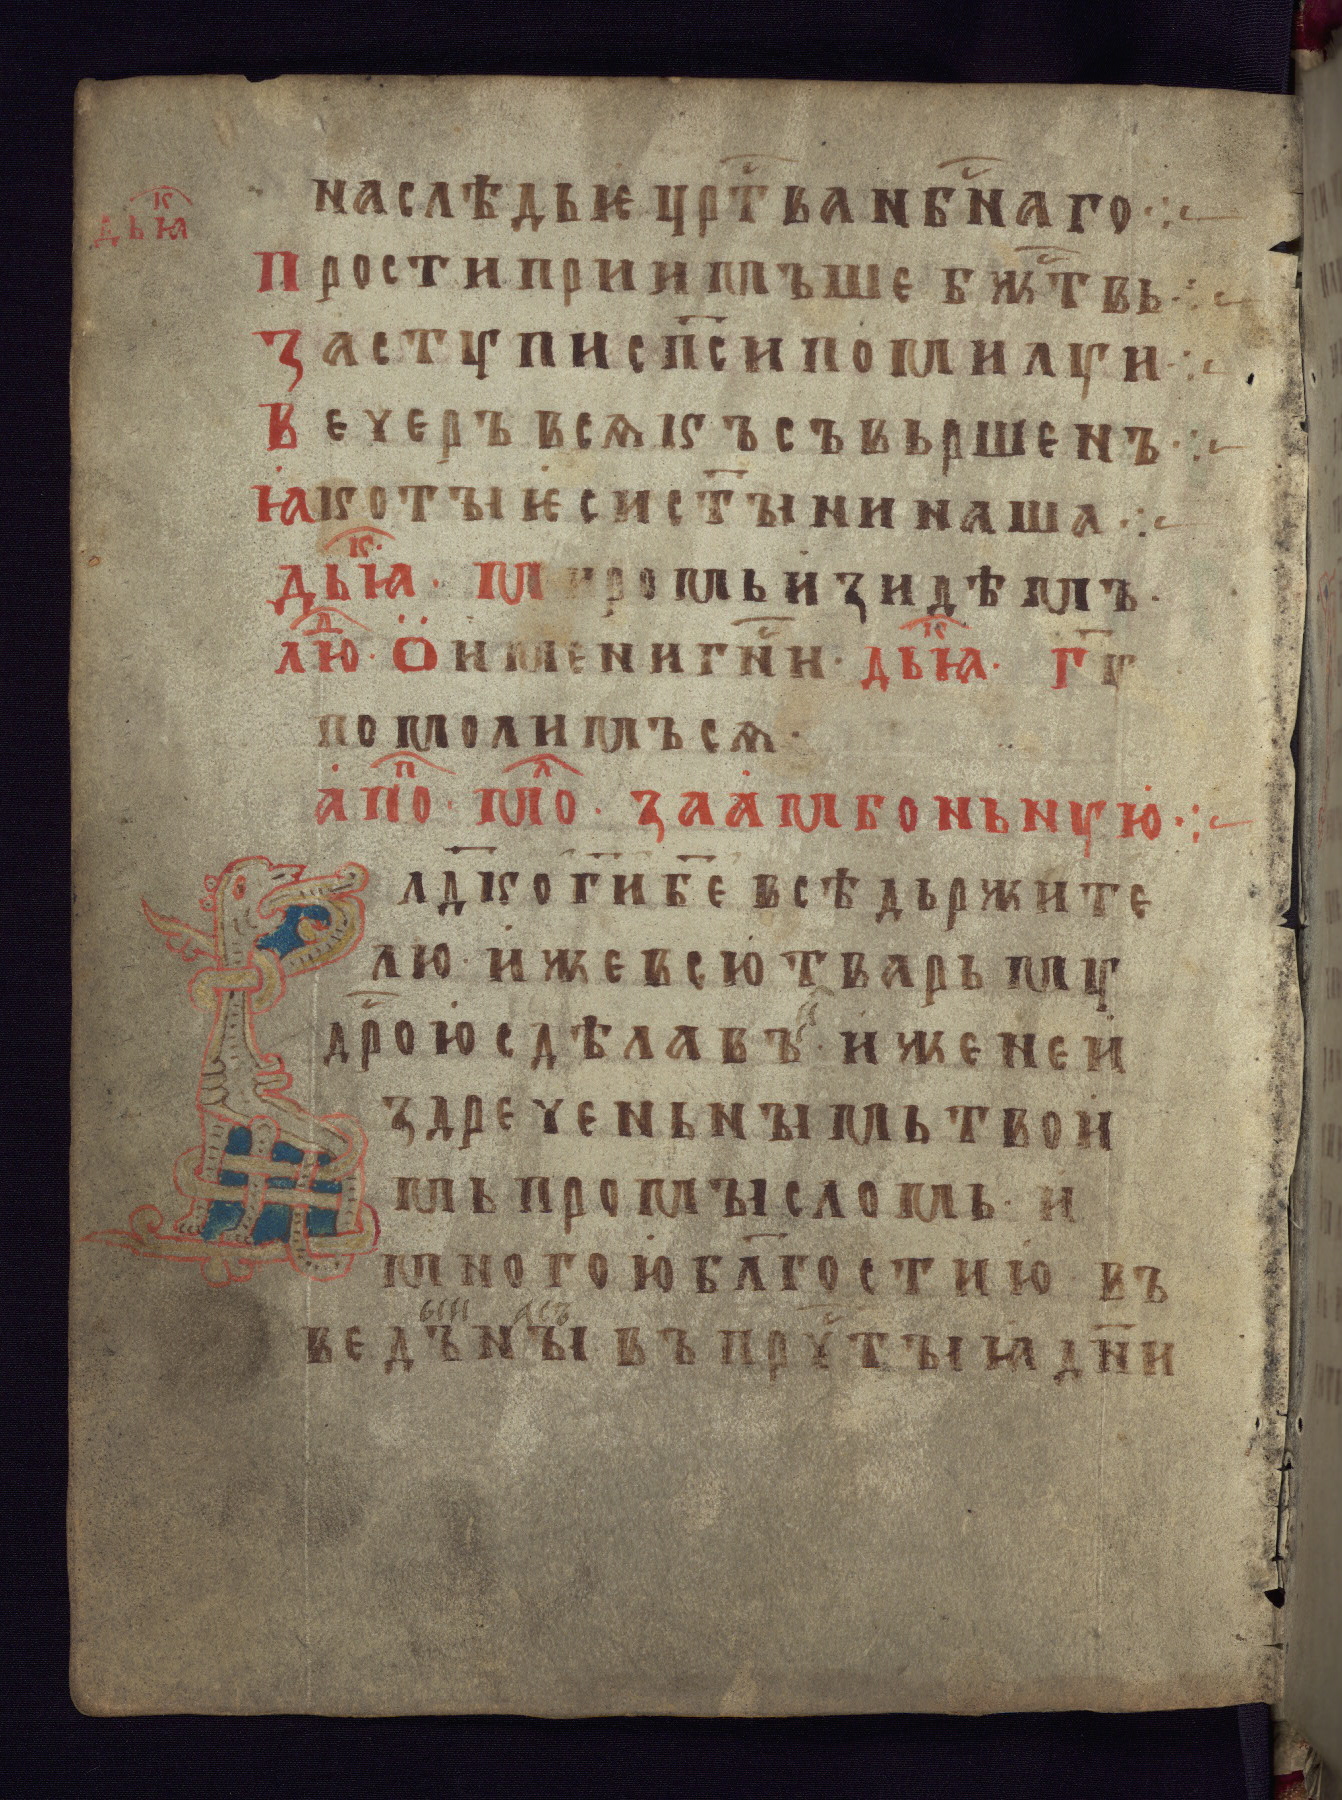 дьꙗ҃к
наслѣдьѥ цр҃тⷭ҇ва нб҃нⷭ҇аго
Прости приимъше бж҃тⷭ҇вь
Заступи сп҃си помилуи
Вечеръ всѧкъ съвьршенъ
Ꙗко ты ѥси ст҃ыни наша
дьꙗ҃к · миромь изидѣмъ ·
лю҃д · Ӧ имени гн҃ⷭи · дьꙗ҃к · Гу
помолимъсѧ ·
апо҃п · мо҃л · заамбоньную
лд҃ко ги҃ бе҃ вседьржите
лю · иже всю тварь му
др҃ⷭою сдѣлавъ · иже неи
здреченьнымь твои
мь промысломь · и
многою блг҃остию въ
ведъ ны въ прⷭ҇чтыꙗ дн҃и